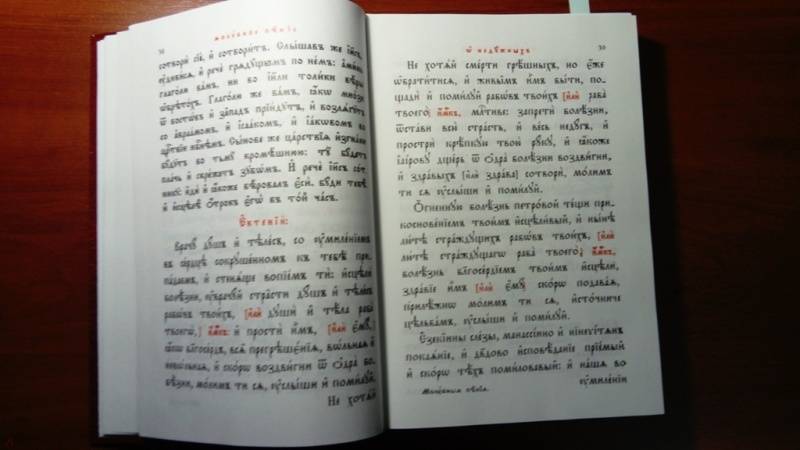 Молебное пѣнїе
сотвори сїе, и҆ сотвори́тъ. Слы́шавъ же і҆и҃съ,
ᲂу҆диви́сѧ, и҆ речѐ грѧдꙋ́щымъ по не́мъ: а҆ми́нь
глаго́лю ва́мъ, ни во і҆и҃ли толи́ки вѣ́ры
ѡ҆брѣто́хъ. Глаго́лю же ва́мъ, ꙗ҆́кѡ мно́зи
ѿ восто́къ и҆ за́падъ прїи́дꙋтъ, и҆ возлѧ́гꙋтъ
со а҆враа́момъ, и҆ і҆саа́комъ, и҆ і҆а́кѡвомъ во
црⷭ҇твїи нбⷭ҇нѣмъ: Сы́нове же ца́рствїѧ и҆згна́ни
бꙋ́дꙋтъ во тмꙋ̀ кромѣ́шнюю: тꙋ̀ бꙋ́детъ
пла́чь и҆ скре́жетъ зꙋбѡ́мъ. И҆ речѐ і҆и҃съ со́т-
никꙋ: и҆дѝ и҆ ꙗ҆́коже вѣ́ровалъ є҆сѝ, бꙋ́ди тебѣ̀
и҆ и҆сцѣлѣ̀ ѻ҆́трокъ є҆гѡ̀ въ то́й ча́съ.
Е҆ктенїѝ:
Врачꙋ̀ дꙋ́шъ и҆ тѣле́съ, со ᲂу҆миле́нїемъ
въ се́рдцѣ сокрꙋше́нномъ къ тебѣ̀ при-
па́даемъ, и҆ стенѧ́ще вопїе́мъ тѝ: и҆сцѣлѝ
бѡлѣ́зни, ᲂу҆врачꙋ́й стра̑сти дꙋ́шъ и҆ тѣле́съ
рабѡ́въ твои́хъ, [и҆лѝ дꙋшѝ и҆ тѣ́ла раба̀
твоегѡ̀,] и҆м҃къ: и҆ простѝ и҆̀мъ, [и҆лѝ є҆мꙋ̀,]
ꙗ҆́кѡ бл҃госе́рдъ, всѧ̑ прегрѣшє́нїѧ, вѡ́льнаѧ и҆
невѡ́льнаѧ, и҆ ско́рѡ воздви́гни ѿ ѻ҆дра̀ бо-
лѣ́зни, мо́лимъ тѝ сѧ, ᲂу҆слы́ши и҆ поми́лꙋй.
Не хотѧ́й
Ѡ҆ недꙋ́жныхъ
Не хотѧ́й сме́рти грѣ́шныхъ, но є҆́же
ѡ҆брати́тисѧ, и҆ живы̑мъ и҆̀мъ бы́ти, по-
щадѝ и҆ поми́лꙋй рабѡ́въ твои́хъ [и҆лѝ раба̀
твоего̀] и҆м҃къ, млⷭ҇тиве: запретѝ болѣ́зни,
ѿста́ви всю̀ стра́сть, и҆ ве́сь недꙋ́гъ, и҆
прострѝ крѣ́пкꙋю твою̀ рꙋ́кꙋ, и҆ ꙗ҆́коже
і҆аі́ровꙋ дще́рь ѿ ѻ҆дра̀ болѣ́зни воздви́гни,
и҆ здра́выхъ [и҆лѝ здра́ва] сотворѝ, мо́лимъ
тѝ сѧ ᲂу҆слы́ши и҆ поми́лꙋй.
Ѻ҆́гненнꙋю болѣ́знь петро́вой те́щи при-
коснове́нїемъ твои́мъ и҆сцѣли́вый, и҆ ны́нѣ
лю́тѣ стра́ждꙋщихъ рабѡ́въ твои́хъ, [и҆лѝ
лю́тѣ стра́ждꙋщаго раба̀ твоего̀,] и҆м҃къ,
болѣ́знь бл҃госе́рдїемъ твои́мъ и҆сцѣлѝ,
здра́вїе и҆̀мъ [и҆лѝ є҆мꙋ̀] ско́рѡ подава́ѧ,
прилѣ́жнѡ мо́лимъ тѝ сѧ, и҆сто́чниче
цѣльба́мъ, ᲂу҆слы́ши и҆ поми́лꙋй.
Е҆зекі̑ины сле́зы, манассі́ино и҆ нїнеѵі́тѧнъ
покаѧ́нїе, и҆ дв҃дово и҆сповѣ́данїе прїе́мый
и҆ ско́рѡ тѣ́хъ поми́ловавый: и҆ на́ша во
ᲂу҆миле́нїи
Молє́бныѧ пѣ̑нїѧ.